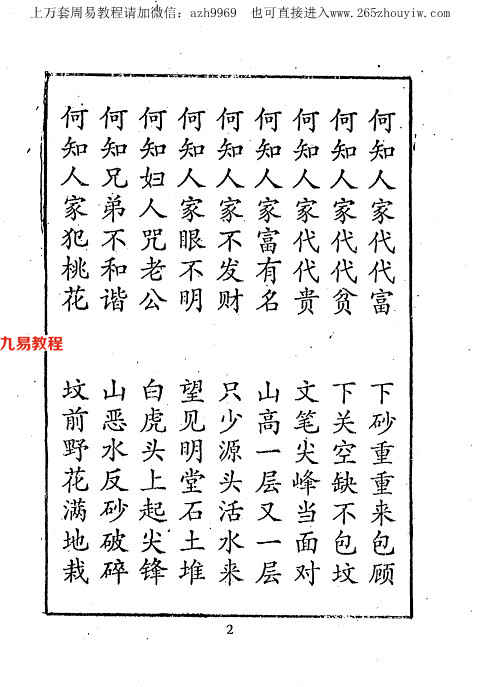 上万套周易教程请加微信：azh9969 也可直接进入www.265zhouyiw.com
何知人家代代富 下砂重重来包顾
何知人家代代贫 下关空缺不包坟
何知人家代代贵 文笔尖峰当面对
何知人家富有名 山高一层又一层
何知人家不发财 只少源头活水来
何知人家眼不明 望见明堂石土堆
何知妇人咒老公 白虎头上起尖锋
何知兄弟不和谐 山恶水反砂破碎
何知人家犯桃花 坟前野花满地栽
九易教程
2